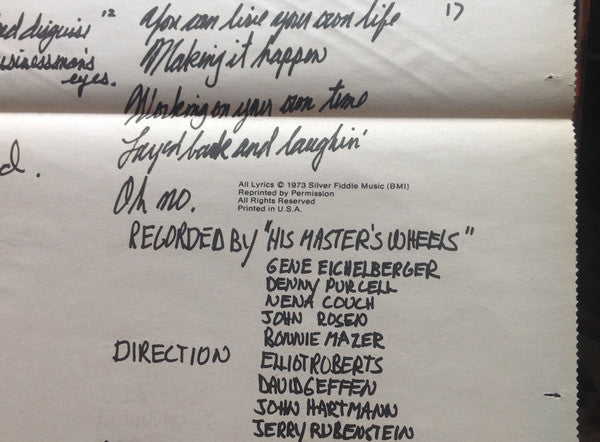 ed disguise 12
businessmen's
eyes.
d.
You can live your own life 17
Making it happen
Working on your own time
Layed back and laughin'
Oh no.
All Lyrics © 1973 Silver Fiddle Music (BMI)
Reprinted by Permission
All Rights Reserved
Printed in U.S.A.
RECORDED BY "HIS MASTER'S WHEELS"
GENE EICHELBERGER
DENNY PURCELL
NENA COUCH
JOHN ROSEN
BONNIE MAZER
DIRECTION ELLIOT ROBERTS
DAVID GEFFEN
JOHN HARTMANN
JERRY RUBENSTEIN